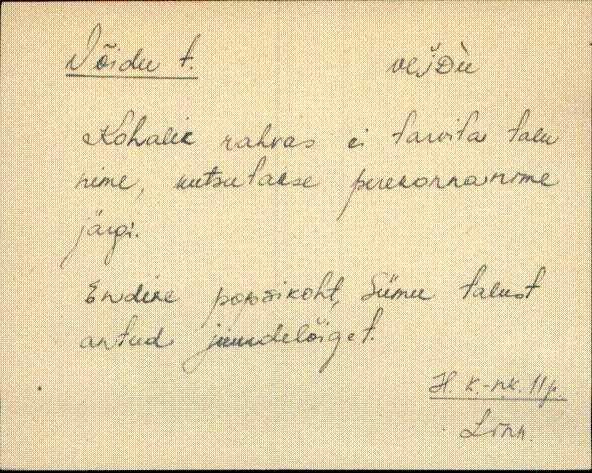 Võidu t. vеĭDù
Kohalik rahvas ei tarvita talu
nime, kutsutakse perekonnanime
järgi.
Endine popsikoht, Siimu talust
antud juurdelõiget.
H. k.-n.k. 11 p.
Linn.